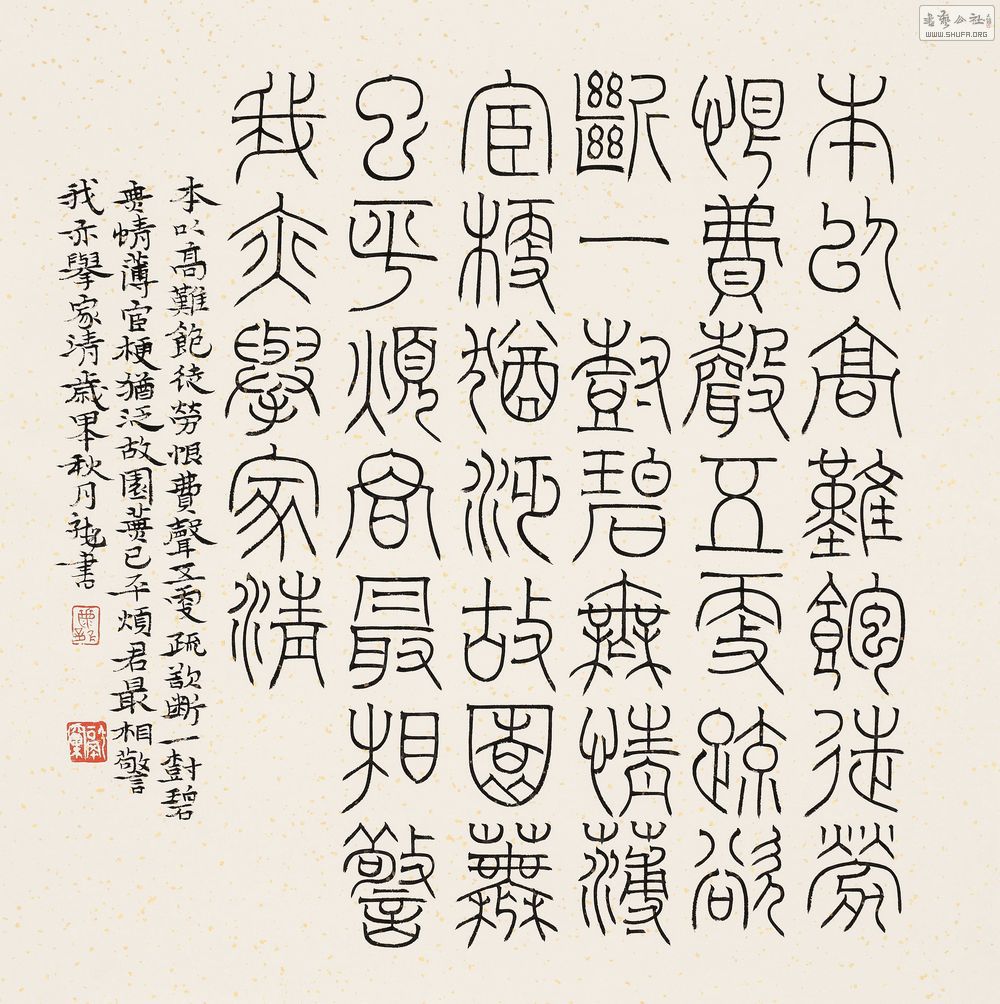 本以高難飽徒勞
恨費聲五更疏欲
斷一樹碧無情薄
宦梗猶泛故園蕪
已平煩君最相警
我亦舉家清
本以高難飽徒勞恨費聲五更疏欲断一樹碧
無情薄宦梗猶泛故園蕪已平煩君最相警
我亦舉家清歲甲午秋月書
書藝公社
WWW.SHUFA.ORG